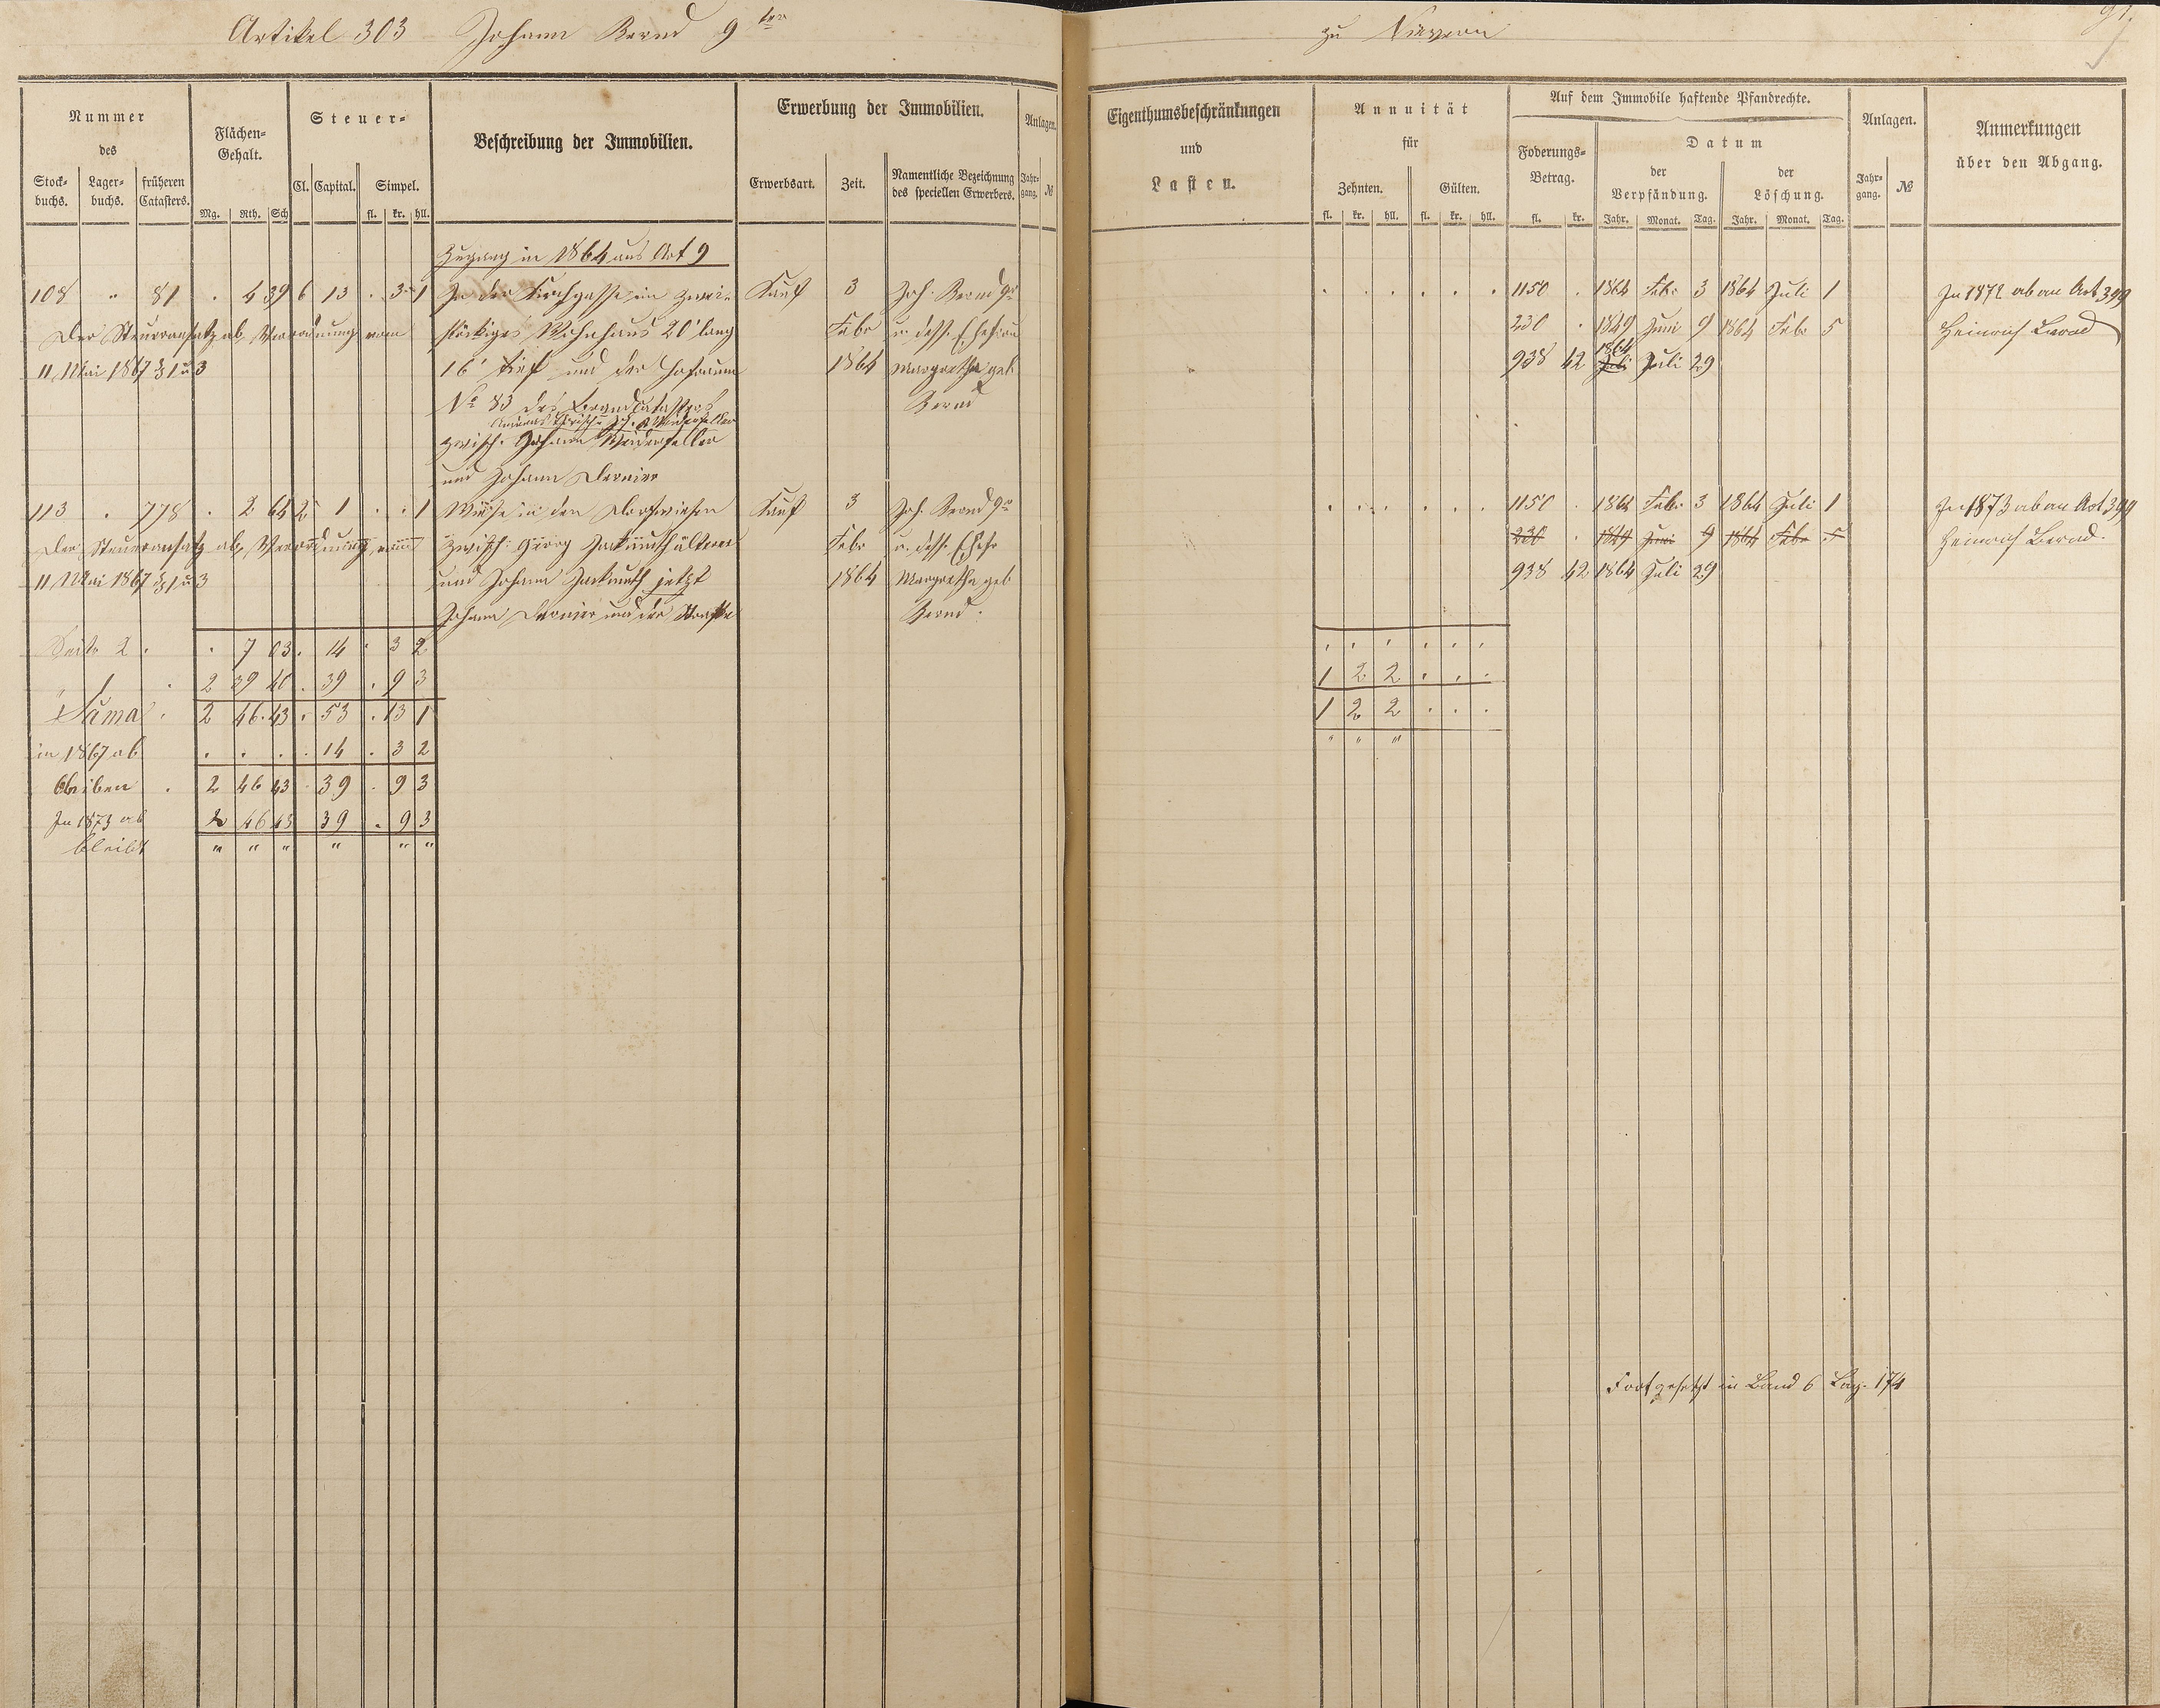 Artikel 303 Johann Bernd 9ter
zu Nievern
91.
Nummer
des
Stock-
buchs.
Lager-
buchs.
früheren
Catasters.
Flächen-
Gehalt.
Mg. Rth. Sch
Steuer-
Cl. Capital. Simpel.
fl. kr. hll.
Beschreibung der Immobilien.
Erwerbung der Immobilien.
Erwerbsart. Zeit.
Namentliche Bezeichnung
des speciellen Erwerbers.
Anlagen.
Jahr-
gang. №
Eigenthumsbeschränkungen
und
Lasten.
Annuität
für
Zehnten. Gülten.
fl. kr. hll. fl. kr. hll.
Auf dem Immobile haftende Pfandrechte.
Foderungs-
Betrag.
fl. kr.
Datum
der
Verpfändung.
der
Löschung.
Jahr. Monat. Tag. Jahr. Monat. Tag.
Anlagen.
Jahr-
gang. №
Anmerkungen
über den Abgang.
Zugang in 1864 aus Art 9
108 " 81 . 4 39 6 13 . 3 1 In der Kirchgasse ein zwei- Kauf 3 Joh. Bernd 9r 1150 . 1864 Febr. 3 1864 Juli 1 In 1872 ab an Art 399
Der Steueransatz ab, Verordnung vom stöckiges Wohnhaus 20' lang Febr u. dess. Ehefrau 230 . 1849 Juni 9 1864 Febr 5 Heinrich Bernd
11. Mai 1867 § 1 u 3 16' tief und der Hofraum 1864 Margretha geb. 938 42 1864 Juli Juli 29
No 83 des Brandcatasters Bernd
zwisch. Johann Weidenfeller
und Johann Dernier
113 . 778 . 2 64 2 1 . . 1 Wiese in den Dorfwiesen Kauf 3 Joh. Bernd 9r 1150 . 1864 Febr. 3 1864 Juli 1 In 1873 ab an Art 399
Der Steueransatz ab, Verordnung vom zwisch. Georg Zarkmuth älter Febr u. dess. Ehefr 230 . 1849 Juni 9 1864 Febr 5 Heinrich Bernd.
11. Mai 1867 § 1 u 3 und Johann Zarkmuth jetzt 1864 Margretha geb 938 42 1864 Juli 29
Johann Dernier und der Strasse Bernd.
Seite 2 . . 7 03 . 14 . 3 2
" 1 . 2 39 40 . 39 . 9 3 1 2 2 . . .
Suma . 2 46 43 . 53 . 13 1 1 2 2 . . .
in 1867 ab . . . . 14 . 3 2 " " "
bleiben . 2 46 43 . 39 . 9 3
In 1873 ab 2 46 43 39 . 9 3
bleibt " " " " " "
Fortgesetzt in Band 6 Pag. 174